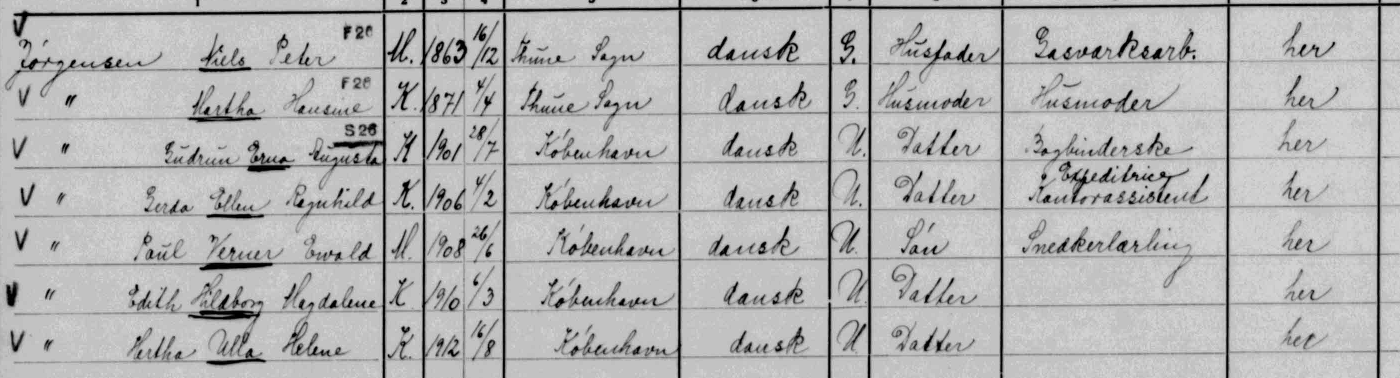 F26
Jørgensen Niels Peter M. 1863 16/12 Thune Sogn dansk G. Husfader Gasværksarb. her
F26
" Martha Hansine K. 1871 4/4 Thune Sogn dansk G. Husmoder Husmoder her
S26
" Gudrun Erna Augusta K 1901 28/7 København dansk U. Datter Bogbinderske her
Expeditrice
" Gerda Ellen Ragnhild K. 1906 4/2 København dansk U. Datter Kontorassistent her
" Paul Verner Ewald M. 1908 26/6 København dansk U. Søn Snedkerlærling her
" Edith Hildborg Magdalene K 1910 6/3 København dansk U. Datter her
" Hertha Ulla Helene K. 1912 16/8 København dansk U Datter her